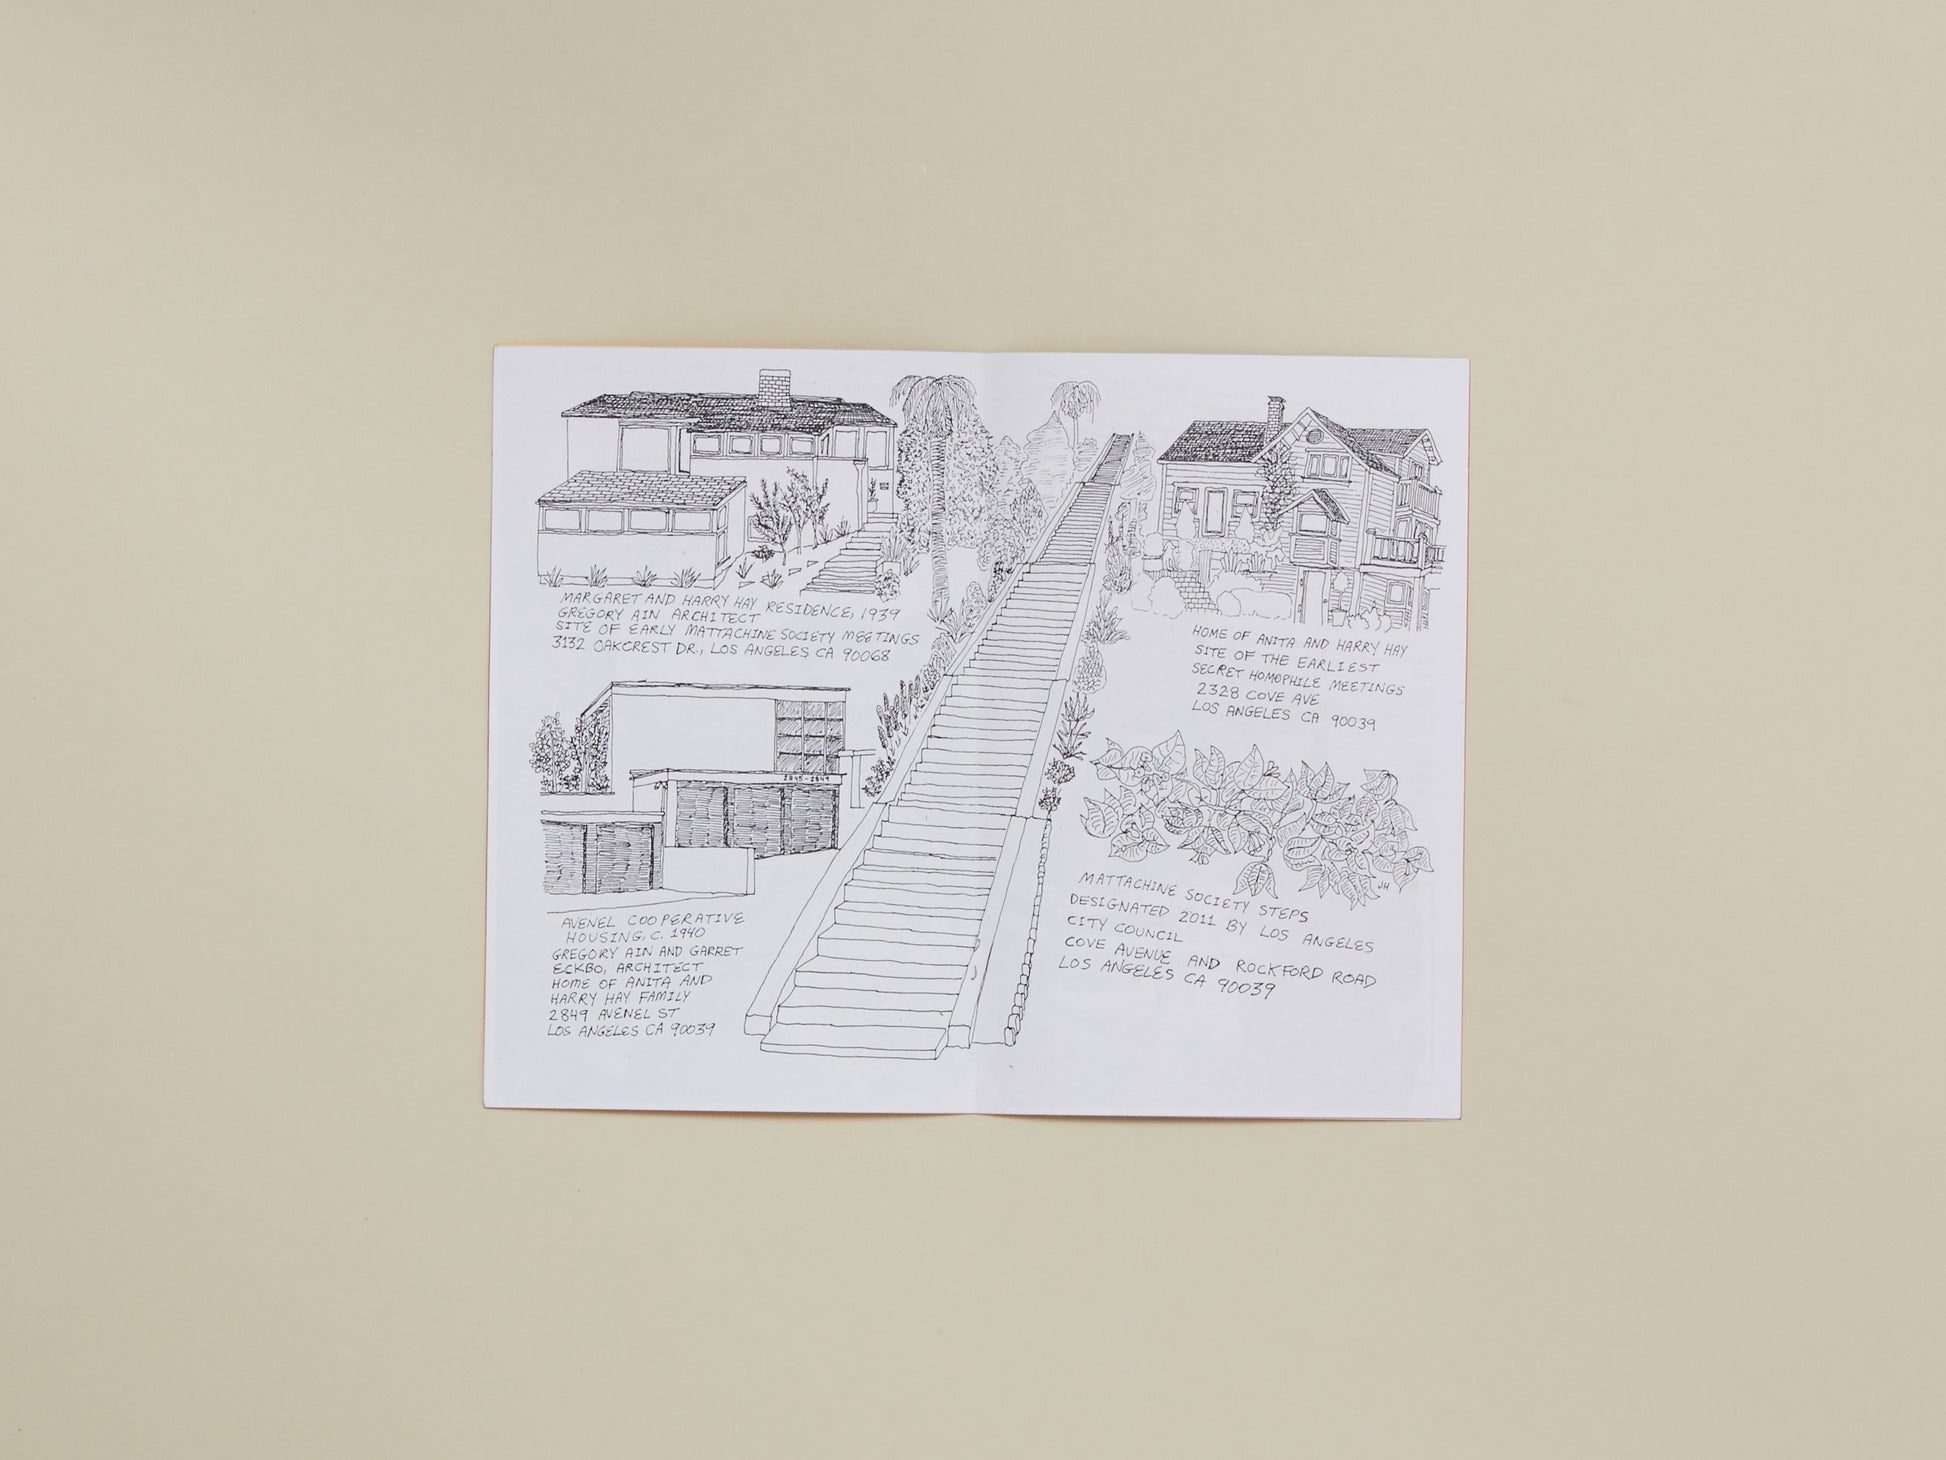 MARGARET AND HARRY HAY RESIDENCE, 1939
GREGORY AIN ARCHITECT
SITE OF EARLY MATTACHINE SOCIETY MEETINGS
3132 OAKCREST DR., LOS ANGELES CA 90068
2845-2849
AVENEL COOPERATIVE
HOUSING, C. 1940
GREGORY AIN AND GARRET
ECKBO, ARCHITECT
HOME OF ANITA AND
HARRY HAY FAMILY
2849 AVENEL ST
LOS ANGELES CA 90039
HOME OF ANITA AND HARRY HAY
SITE OF THE EARLIEST
SECRET HOMOPHILE MEETINGS
2328 COVE AVE
LOS ANGELES CA 90039
JH
MATTACHINE SOCIETY STEPS
DESIGNATED 2011 BY LOS ANGELES
CITY COUNCIL
COVE AVENUE AND ROCKFORD ROAD
LOS ANGELES CA 90039